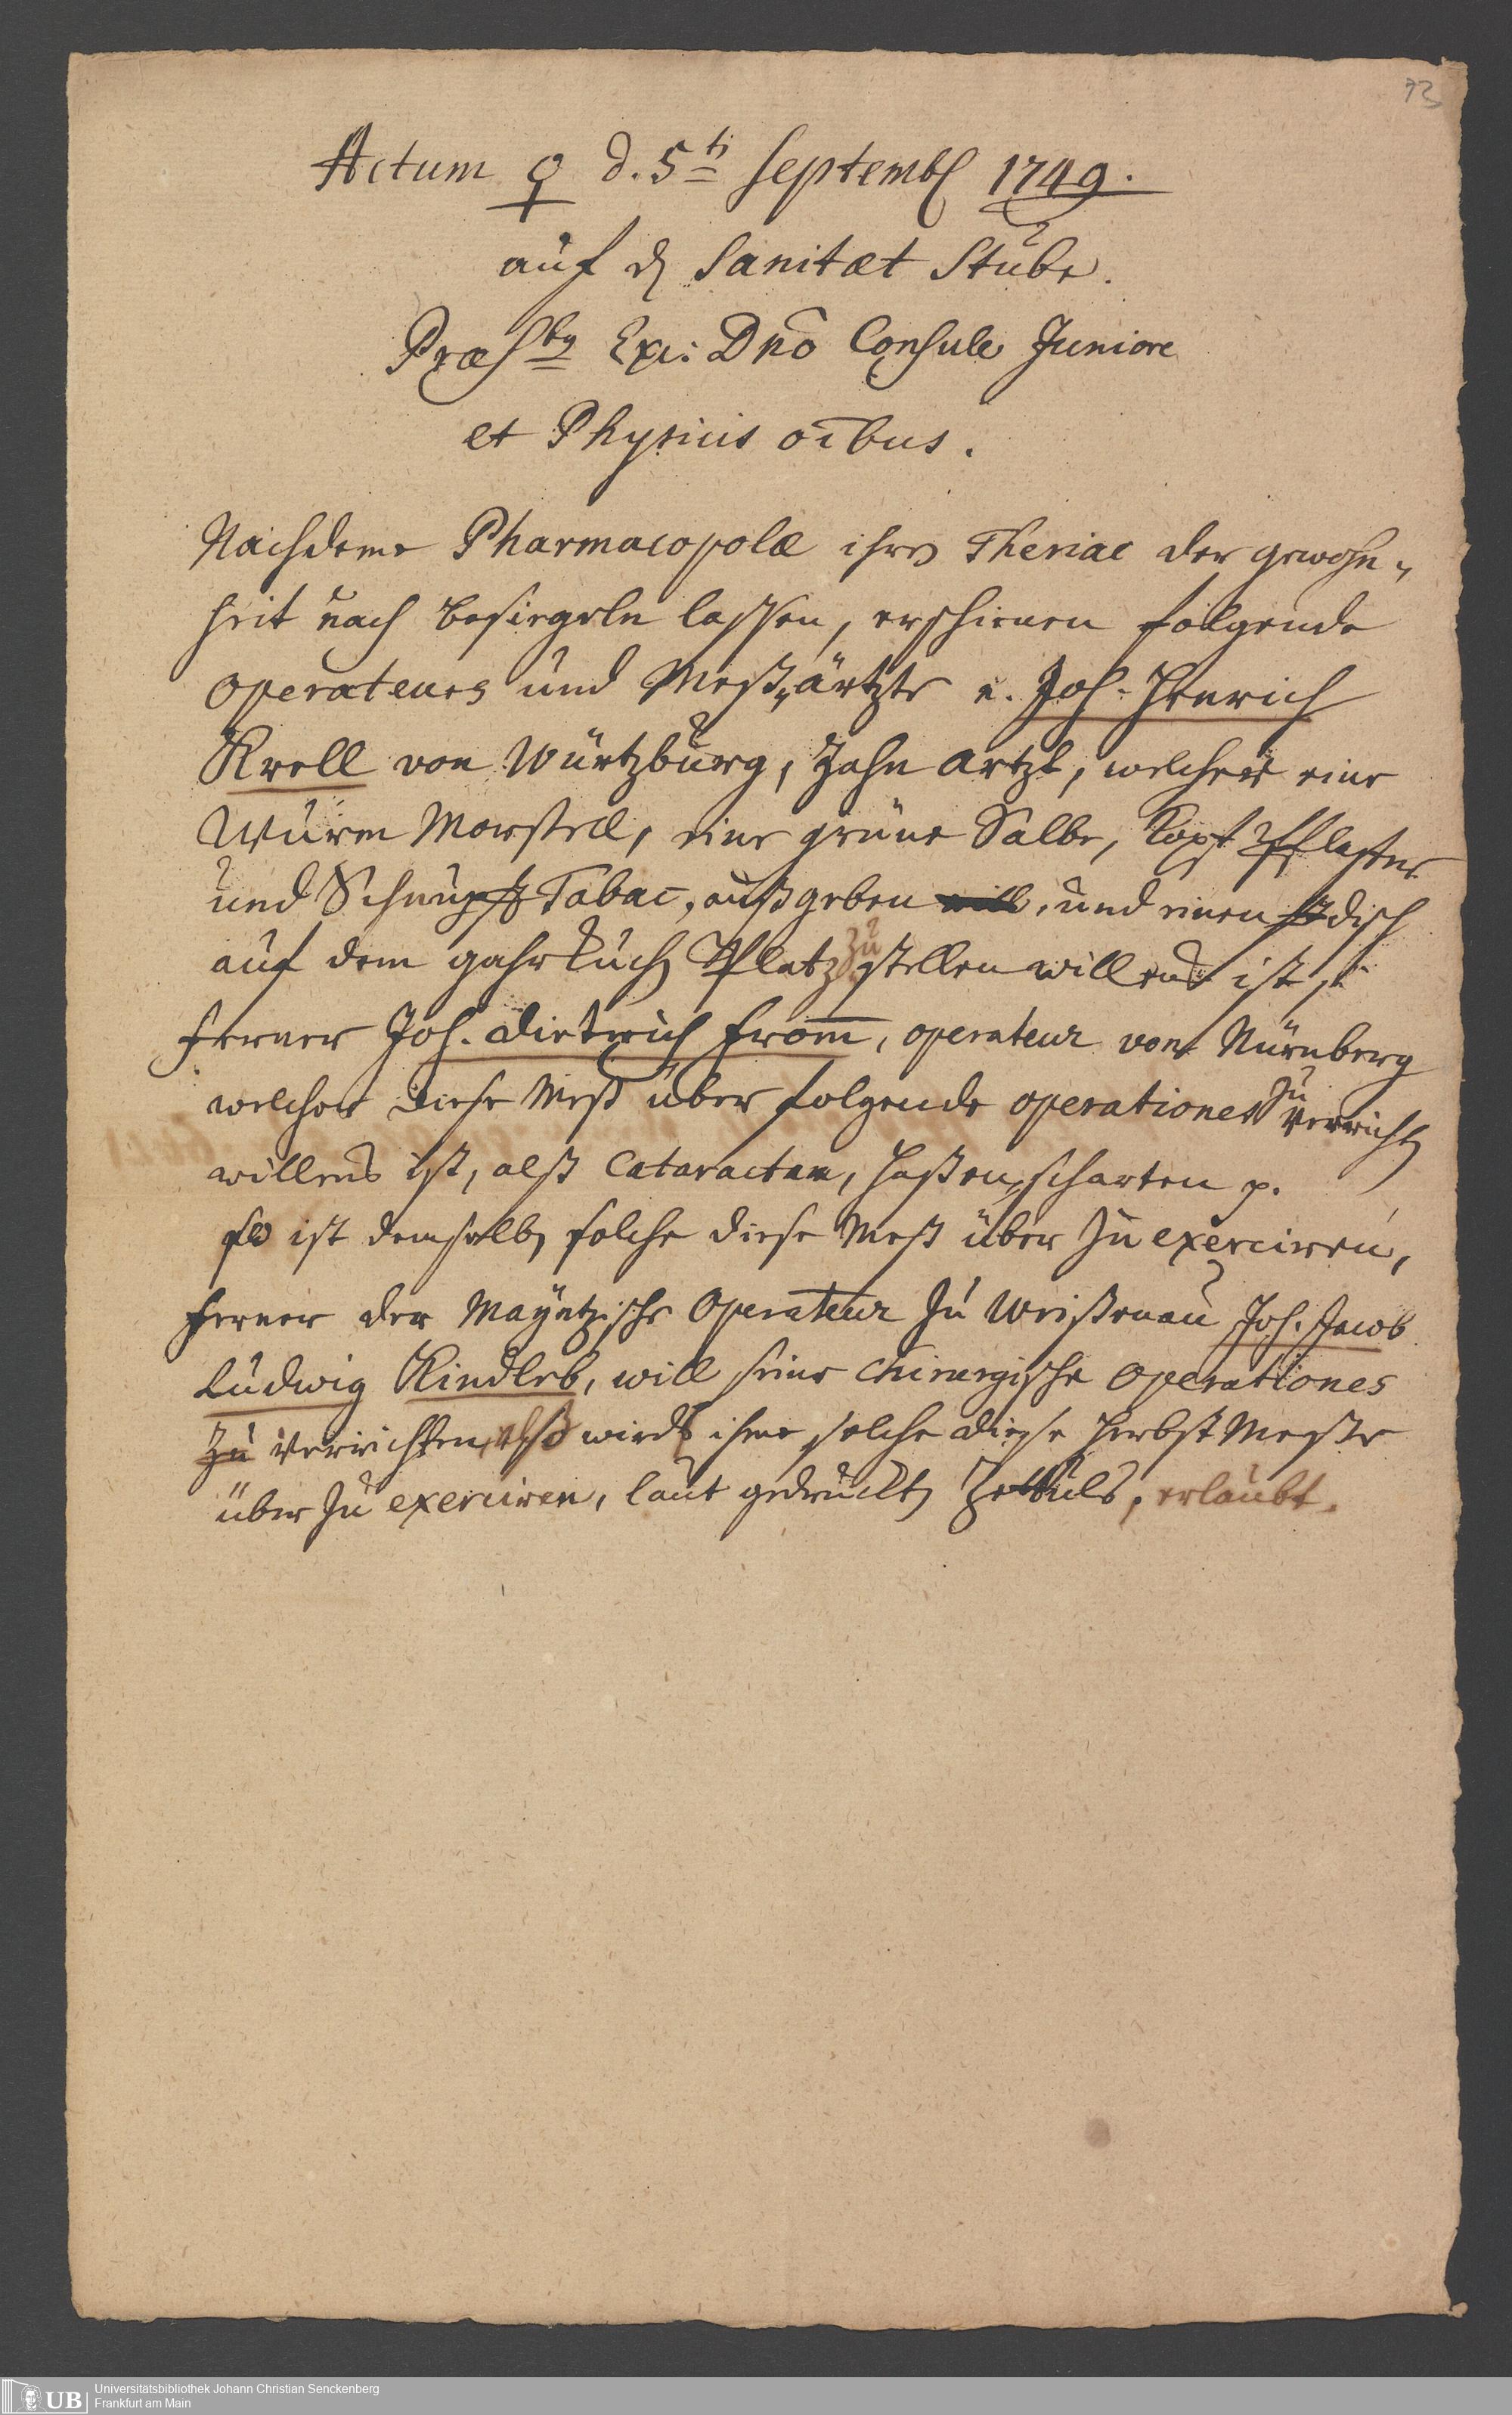 73
Actum ♀ d. 5ti Septembr 1749.
auf der Sanitæt Stube.
Præsbq Exc: Dno Consule Juniore
et Physicis oibus.
Nachdeme Pharmacopolæ ihren Theriac der gewohn„
heit nach besiegeln lassen, erschienen folgende
operateurs und Meß„ärtzte a. Joh. Henrich
Krell von Würtzburg, Zahn Artzt, welcher eine
Wurm Morsell, eine grüne Salbe, Kopf Pflaster
und Schnupff Tabac, außgeben will, und einen disch
auf dem garkuchen Platz zu stellen willens ist,
ferner Joh. Dietrich From̅, operateur von Nürnberg
welcher diese Meß über folgende operationes zu verrichten
willens ist, alß Cataracten, Hasen„scharten p.
so ist demselben solche diese Meß über zu exerciren,
ferner der Mayntzische Operateur zu Weißenau Joh. Jacob
Ludwig Kindleb, will seine chirurgische Operationes
zu verrichten, alß wird ihme solche diese Herbst Messe
über zu exerciren, laut gedruckten Zettuls, erlaubt.
UB
Universitätsbibliothek Johann Christian Senckenberg
Frankfurt am Main